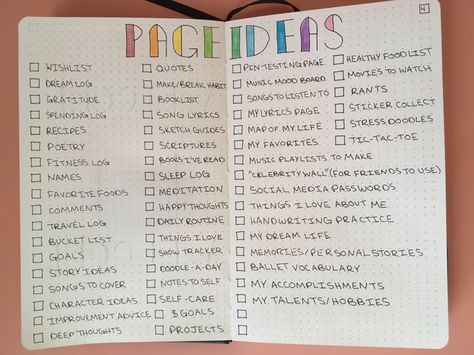 PAGE IDEAS
WISHLIST
DREAM LOG
GRATITUDE
SPENDING LOG
RECIPES
POETRY
FITNESS LOG
NAMES
FAVORITE FOODS
COMMENTS
TRAVEL LOG
BUCKET LIST
GOALS
STORY IDEAS
SONGS TO COVER
CHARACTER IDEAS
IMPROVEMENT ADVICE
DEEP THOUGHTS
QUOTES
MAKE/BREAK HABIT
BOOKLIST
SONG LYRICS
SKETCH GUIDES
SCRIPTURES
BOOKS I'VE READ
SLEEP LOG
MEDITATION
HAPPY THOUGHTS
DAILY ROUTINE
THINGS I LOVE
SHOW TRACKER
DOODLE-A-DAY
NOTES TO SELF
SELF-CARE
$ GOALS
PROJECTS
PEN-TESTING PAGE
MUSIC MOOD BOARD
SONGS TO LISTEN TO
MY LYRICS PAGE
MAP OF MY LIFE
MY FAVORITES
MUSIC PLAYLISTS TO MAKE
"CELEBRITY WALL" (FOR FRIENDS TO USE)
SOCIAL MEDIA PASSWORDS
THINGS I LOVE ABOUT ME
HANDWRITING PRACTICE
MY DREAM LIFE
MEMORIES/PERSONAL STORIES
BALLET VOCABULARY
MY ACCOMPLISHMENTS
MY TALENTS/HOBBIES
HEALTHY FOOD LIST
MOVIES TO WATCH
RANTS
STICKER COLLECT
STRESS DOODLES
TIC-TAC-TOE